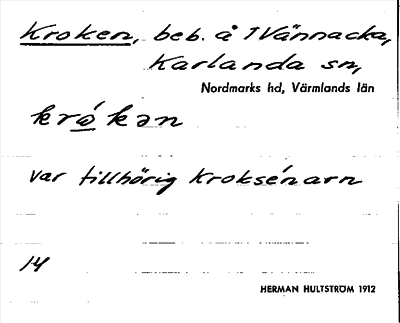 Kroken, beb. å Vännacka,
Karlanda sn,
Nordmarks hd, Värmlands län
krǿkən
var tillhörig Kroksénarn
14
HERMAN HULTSTRÖM 1912